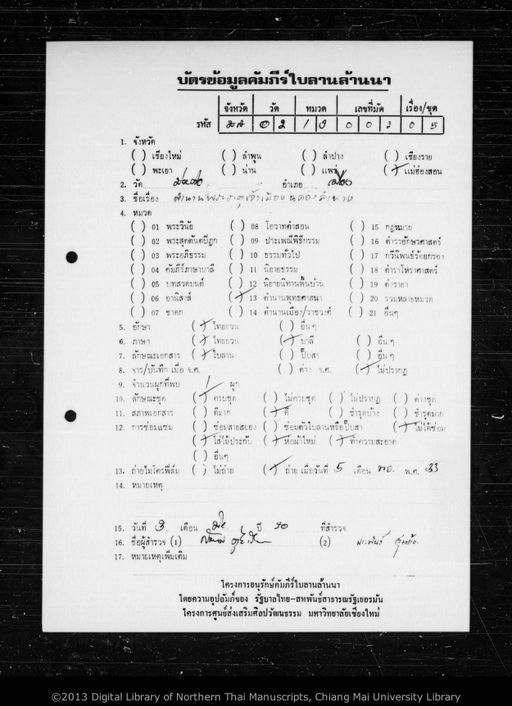 บัตรข้อมูลคัมภีร์ใบลานล้านนา
จังหวัด วัด หมวด เลขที่มัด เรื่อง/ชุด
รหัส
1. จังหวัด
( ) เชียงใหม่ ( ) ลำพูน ( ) ลำปาง ( ) เชียงราย
( ) พะเยา ( ) น่าน ( ) แพร่ ( ) แม่ฮ่องสอน
2. วัด อำเภอ
3. ชื่อเรื่อง
4. หมวด
( ) 01 พระวินัย ( ) 08 โอวาทคำสอน ( ) 15 กฎหมาย
( ) 02 พระสุตตันตปิฎก ( ) 09 ประเพณีพิธีกรรม ( ) 16 ตำราอักษรศาสตร์
( ) 03 พระอภิธรรม ( ) 10 ธรรมทั่วไป ( ) 17 กวีนิพนธ์ร้อยกรอง
( ) 04 คัมภีร์ภาษาบาลี ( ) 11 นิยายธรรม ( ) 18 ตำราโหราศาสตร์
( ) 05 บทสวดมนต์ ( ) 12 นิยายนิทานพื้นบ้าน ( ) 19 ตำรายา
( ) 06 อานิสงส์ ( ) 13 ตำนานพุทธศาสนา ( ) 20 รวมหลายหมวด
( ) 07 ชาดก ( ) 14 ตำนานเมือง/ราชวงศ์ ( ) 21 อื่นๆ
5. อักษา ( ) ไทยยวน ( ) อื่นๆ
6. ภาษา ( ) ไทยยวน ( ) บาลี ( ) อื่นๆ
7. ลักษณะเอกสาร ( ) ใบลาน ( ) ปั๊บสา ( ) อื่นๆ
8. จาร/บันทึก เมื่อ จ.ศ. ( ) ค่าง จ.ศ. ( ) ไม่ปรากฏ
9. จำนวนผูกที่พบ 1 ผูก
10. ลักษณะชุด ( ) ครบชุด ( ) ไม่ครบชุด ( ) ไม่ปรากฏ ( ) ต่างชุด
11. สภาพเอกสาร ( ) ดีมาก ( ) ดี ( ) ชำรุดบ้าง ( ) ชำรุดมาก
12. การซ่อมแซม ( ) ซ่อมสายสยอง ( ) ซ่อมตัวใบลานหรือปั๊บสา ( ) ไม่ได้ซ่อม
( ) ใส่ไม้ประกับ ( ) ห่อผ้าใหม่ ( ) ทำความสะอาด
( ) อื่นๆ
13. ถ่ายไมโครฟิล์ม ( ) ไม่ถ่าย ( ) ถ่าย เมื่อวันที่ 5 เดือน พ.ศ. 33
14. หมายเหตุ
15. วันที่ 3 เดือน ปี 30 ที่สำรวจ
16. ชื่อผู้สำรวจ (1) (2)
17. หมายเหตุเพิ่มเติม
โครงการอนุรักษ์คัมภีร์ใบลานล้านนา
โดยความอุปถัมภ์ของ รัฐบาลไทย-สหพันธ์สาธารณรัฐเยอรมัน
โครงการศูนย์ส่งเสริมศิลปวัฒนธรรม มหาวิทยาลัยเชียงใหม่
©2013 Digital Library of Northern Thai Manuscripts, Chiang Mai University Library